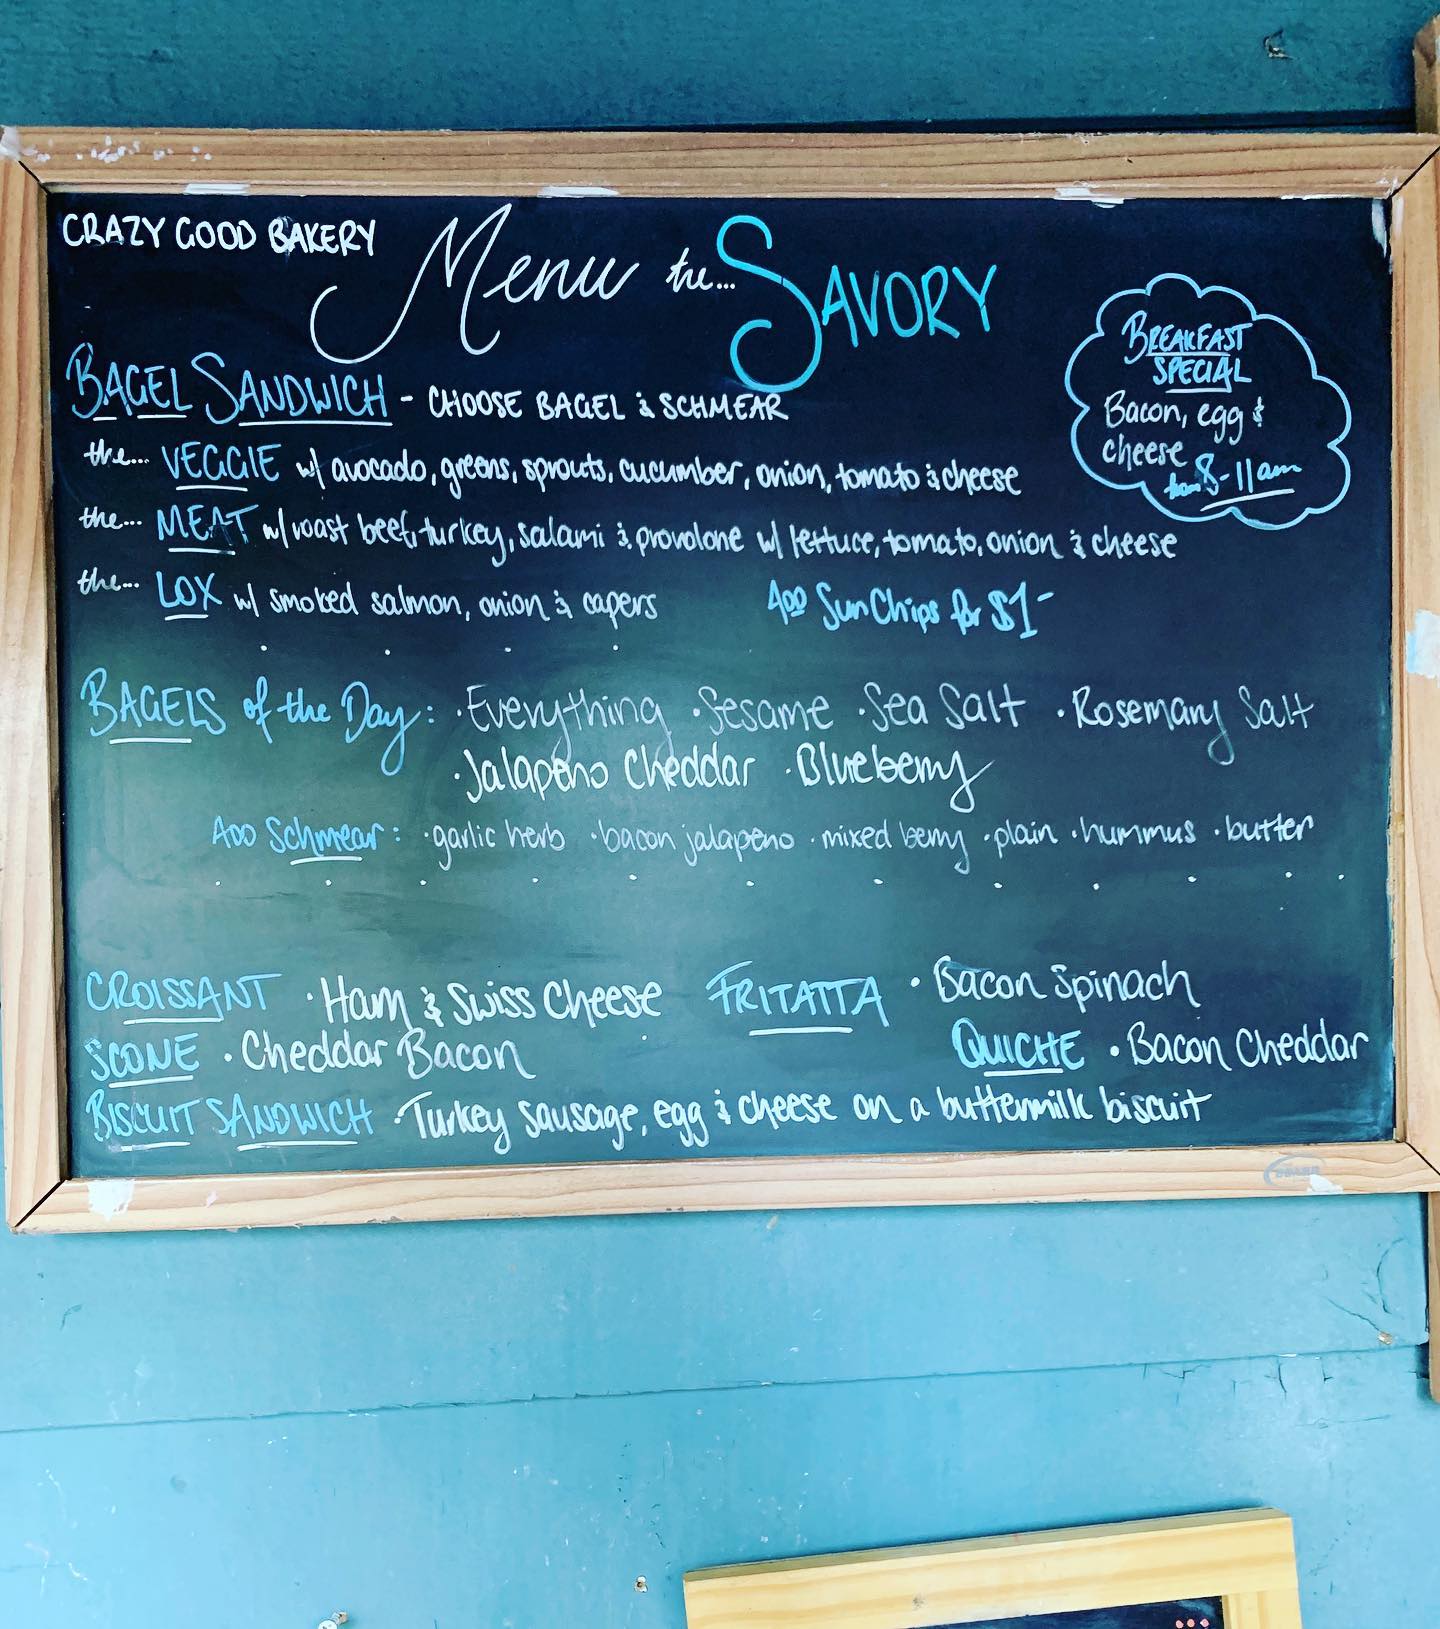 CRAZY GOOD BAKERY
Menu the... SAVORY
BREAKFAST
SPECIAL
Bacon, egg &
cheese
from 8-11am
BAGEL SANDWICH - CHOOSE BAGEL & SCHMEAR
the... VEGGIE w/ avocado, greens, sprouts, cucumber, onion, tomato & cheese
the... MEAT w/ roast beef, turkey, salami & provolone w/ lettuce, tomato, onion & cheese
the... LOX w/ smoked salmon, onion & capers
ADD SunChips for $1-
BAGELS of the Day: ·Everything ·Sesame ·Sea Salt ·Rosemary Salt
·Jalapeno Cheddar ·Blueberry
ADD Schmear: ·garlic herb ·bacon jalapeno ·mixed berry ·plain ·hummus ·butter
CROISSANT ·Ham & Swiss Cheese FRITATTA ·Bacon Spinach
SCONE ·Cheddar Bacon QUICHE ·Bacon Cheddar
BISCUIT SANDWICH ·Turkey sausage, egg & cheese on a buttermilk biscuit